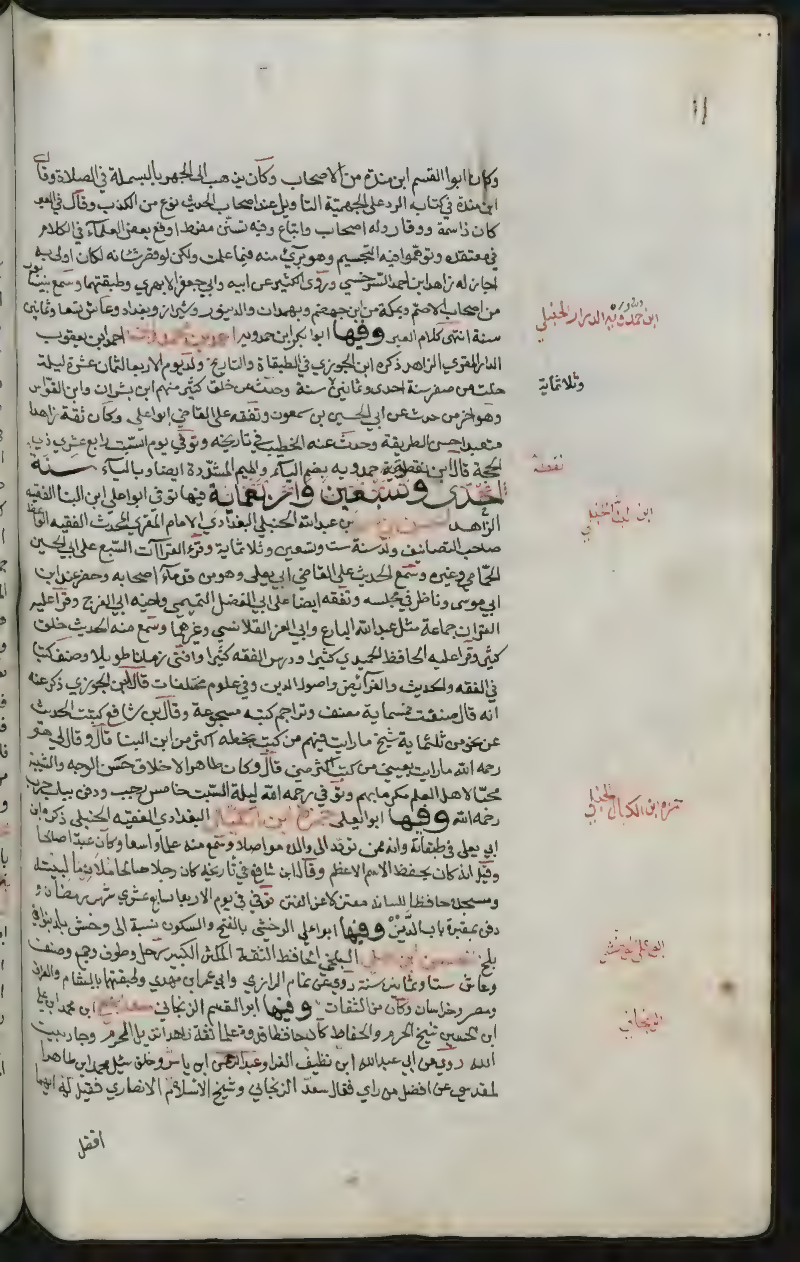 11
وكان ابوا القسم ابن مندة من الاصحاب وكان يذهب الى الجهر بالبسملة في الصلاة وقال
ابن مندة في كتابه الرد على الجهمية التاويل عند اصحاب الحديث نوع من الكذب وقال في العبر
كان ذا سمة ووقار وله اصحاب واتباع وفيه تسنن مفرط اوقع بعض العلماء في الكلام
في معتقده وتوهموا فيه التجسيم وهو بريء منه فيما علمت ولكن لو قصر شانه لكان اولى به
اجاز له زاهد ابن احمد السرخسي وروى الكثير عن ابيه وابي جعفر الابهري وطبقتها وسمع بنيسابور
من اصحاب الاصم وبمكة من ابن جهضم وبهمدان والدينور وشيراز وبغداد وعاش تسعا وثمانين
سنة انتهى كلام العبر وفيها ابوا بكر ابن حمدويه احمد بن محمد احمد ابن يعقوب
المقري الزاهد ذكره ابن الجوزي في الطبقاة والتاريخ ولد يوم الاربعا لثمان عشرة ليلة
خلت من صفر سنة احدى وثمانين سنة وحدث عن خلق كثير منهم ابن بشران وابن القواس
وهو اخر من حدث عن ابي الحسين بن سمعون وتفقه على القاضي ابوا علي وكان ثقة زاهدا
متعبدا حسن الطريقة وحدث عنه الخطيب في تاريخه وتوفي يوم السبت رابع عشري ذي
الحجة قال ابن نقطة حمدويه بضم الياء والميم المشددة ايضا وبالياء سنة
احدى وسبعين واربعماية فيها توفي ابوا علي ابن البنا الفقيه
الزاهد الحسن بن بن عبد الله الحنبلي البغدادي الامام المقري المحدث الفقيه الواعظ
صاحب التصانيف ولد سنة ست وتسعين وثلاثماية وقرء القراآت السبع على ابي الحسين
الحمامي وغيره وسمع الحديث على القاضي ابي يعلى وهو من قدماء اصحابه وحضر عند ابن
ابي موسى وناظر في مجلسه وتفقه ايضا على ابي الفضل التميمي واخيه ابي الفرج وقرا عليه
القران جماعة مثل عبد الله البارع وابي العز القلانسي وغيرهما وسمع منه الحديث خلق
كثير وقرا عليه الحافظ الحميدي كثيرا ودرس الفقه كثيرا وافتى زمانا طويلا وصنف كتبا
في الفقه والحديث والفرائض واصول الدين وفي علوم مختلفات قال ابن الجوزي ذكر عنه
انه قال صنفت خمسماية مصنف وتراجم كتبه مسجوعة وقال بن شافع كتبت الحديث
عن نحو من ثلثماية شيخ ما رايت فيهم من كتب بخطه اكثر من ابن البنا قال وقال لي هو
رحمه الله ما رايت بعيني من كتب اكثر مني قال وكان طاهر الاخلاق حسن الوجه والشيبة
محبا لاهل العلم مكرما لهم وتوفي رحمه الله ليلة السبت خامس رجب ودفن بباب حرب
رحمه الله وفيها ابوا يعلى حمزة ابن الكيال البغدادي الفقيه الحنبلي ذكره ابن
ابي يعلى في طبقاته وانه ممن تردد الى والده مواصلا وسمع منه علما واسعا وكان عبدا صالحا
وقيل انه كان يحفظ الاسم الاعظم وقال ابن شافع في تاريخه كان رجلا صالحا ملازما لبيته
ومسجده حافظا للسانه معتزلا عن الفتن توفي في يوم الاربعا سابع عشري شهر رمضان و
دفن بمقبرة باب الدير وفيها ابوا علي الوخشي بالفتح والسكون نسبة الى وخش بلد بنواحي
بلخ الحسين ابن علي البلخي الحافظ الثقة المكثر الكبير رحل وطوف وجمع وصنف
وعاش ستا وثمانين سنة روى عن تمام الرازي وابي عمر ابن مهدي وطبقتها بالشام والعراق
ومصر وخراسان وكان من الثقات وفيها ابو القسم الزنجاني سعد ابن محمد ابن علي
ابن الحسين شيخ الحرم والحفاظ كان حافظا قدوة علما ثقة زاهدا نزيل الحرم وجار بيت
الله روى عن ابي عبد الله ابن نظيف الفرا وعبد الرحمن ابن ياسر وخلق سئل محمد ابن طاهر
المقدسي عن افضل من راى فقال سعد الزنجاني وشيخ الاسلام الانصاري فقيل له ايهما
افضل
ابن حمدويه الحنبلي
وثلاثماية
نقطة
ابن البنا الحنبلي
حمزه ابن الكيال الحنبلي
الزنجاني